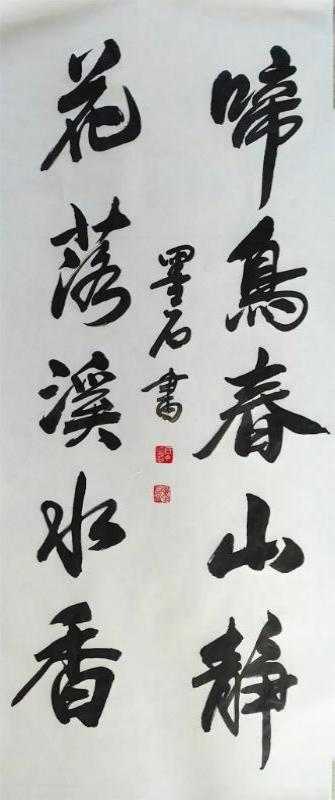 啼鳥春山靜
花落溪水香
墨石書